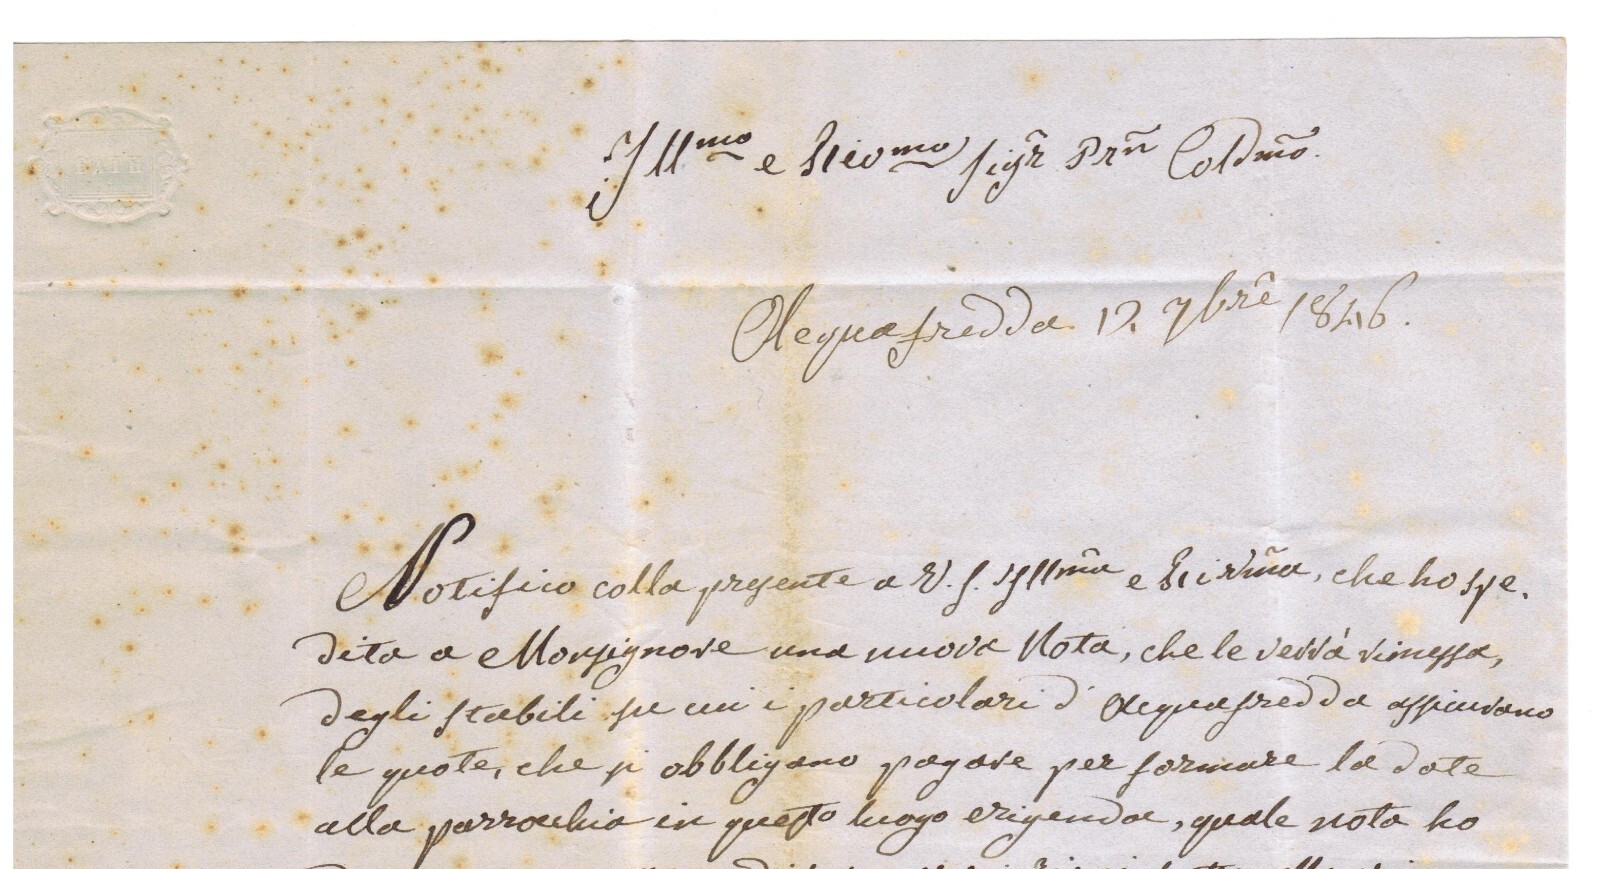 BATH
Ill.mo e Rev.mo Sig.r Prñ Colᵈmo.
Acquafredda 12 7bre 1846.
Notifico colla presente a V. S. Illma e Revma, che ho spe.
dita a Monsignore una nuova Nota, che le verrà rimessa,
degli stabili su cui i particolari d'Acquafredda assicurano
le quote, che si obbligano pagare per formare la dote
alla parrochia in questo luogo erigenda, quale nota ho